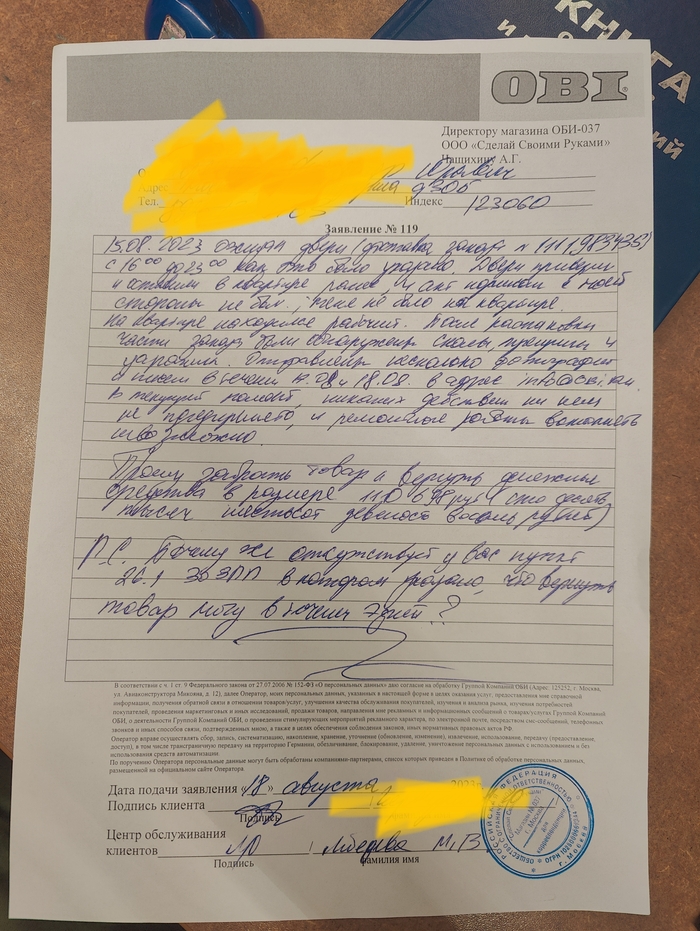 КНИГА
OBI
Директору магазина ОБИ-037
ООО «Сделай Своими Руками»
Чащихину А.Г.
Адрес
Тел. Индекс 123060
Заявление № 119
15.08.2023 ожидал двери (доставка заказа № 111983435)
с 16 00 до 23 00 как это было указано. Двери привезли
и оставили в квартире ранее, и акт подписан с моей
стороны не был, меня не было на квартире.
На квартире находился рабочий. После распаковки
части заказа были обнаружены сколы, трещины и
царапины. Отправлены несколько фотографий
и писем в течени 17.08 и 18.08. в адрес
В текущий момент, никаких действий ни кем
не предпринято, и ремонтные работы выполнять
невозможно.
Прошу забрать товар и вернуть денежные
средства в размере 110 698 руб (сто десять
тысяч шестьсот девяносто восемь рублей)
P.S. Почему же отсутствует у вас пункт
26.1 ЗОЗПП в котором указано, что вернуть
товар могу в течении 7 дней?
В соответствии с ч. 1 ст. 9 Федерального закона от 27.07.2006 № 152-ФЗ «О персональных данных» даю согласие на обработку Группой Компаний ОБИ (Адрес: 125252, г. Москва,
ул. Авиаконструктора Микояна, д. 12), далее Оператор, моих персональных данных, указанных в настоящей форме в целях оказания услуг, предоставления мне справочной
информации, получения обратной связи в отношении товаров/услуг, улучшения качества обслуживания покупателей, изучения и анализа рынка, изучения потребностей
покупателей, проведения маркетинговых и иных исследований, продажи товаров, направления мне рекламных и информационных сообщений о товарах/услугах Группы Компаний
ОБИ, о деятельности Группы Компаний ОБИ, о проведении стимулирующих мероприятий рекламного характера, по электронной почте, посредством смс-сообщений, телефонных
звонков и иных способов связи, подтвержденных мною, а также в целях обеспечения соблюдения законов, иных нормативных правовых актов РФ.
Оператор вправе осуществлять сбор, запись, систематизацию, накопление, хранение, уточнение (обновление, изменение), извлечение, использование, передачу (предоставление,
доступ), в том числе трансграничную передачу на территорию Германии, обезличивание, блокирование, удаление, уничтожение персональных данных с использованием и без
использования средств автоматизации.
По поручению Оператора персональные данные могут быть обработаны компаниями-партнерами, список которых приведен в Политике по обработке персональных данных,
размещенной на официальном сайте Оператора
Дата подачи заявления «18» августа
Подпись клиента
Подпись
Центр обслуживания
клиентов Лебедева М.В
Подпись фамилия имя
РОССИЙСКАЯ ФЕДЕРАЦИЯ
г. Москва